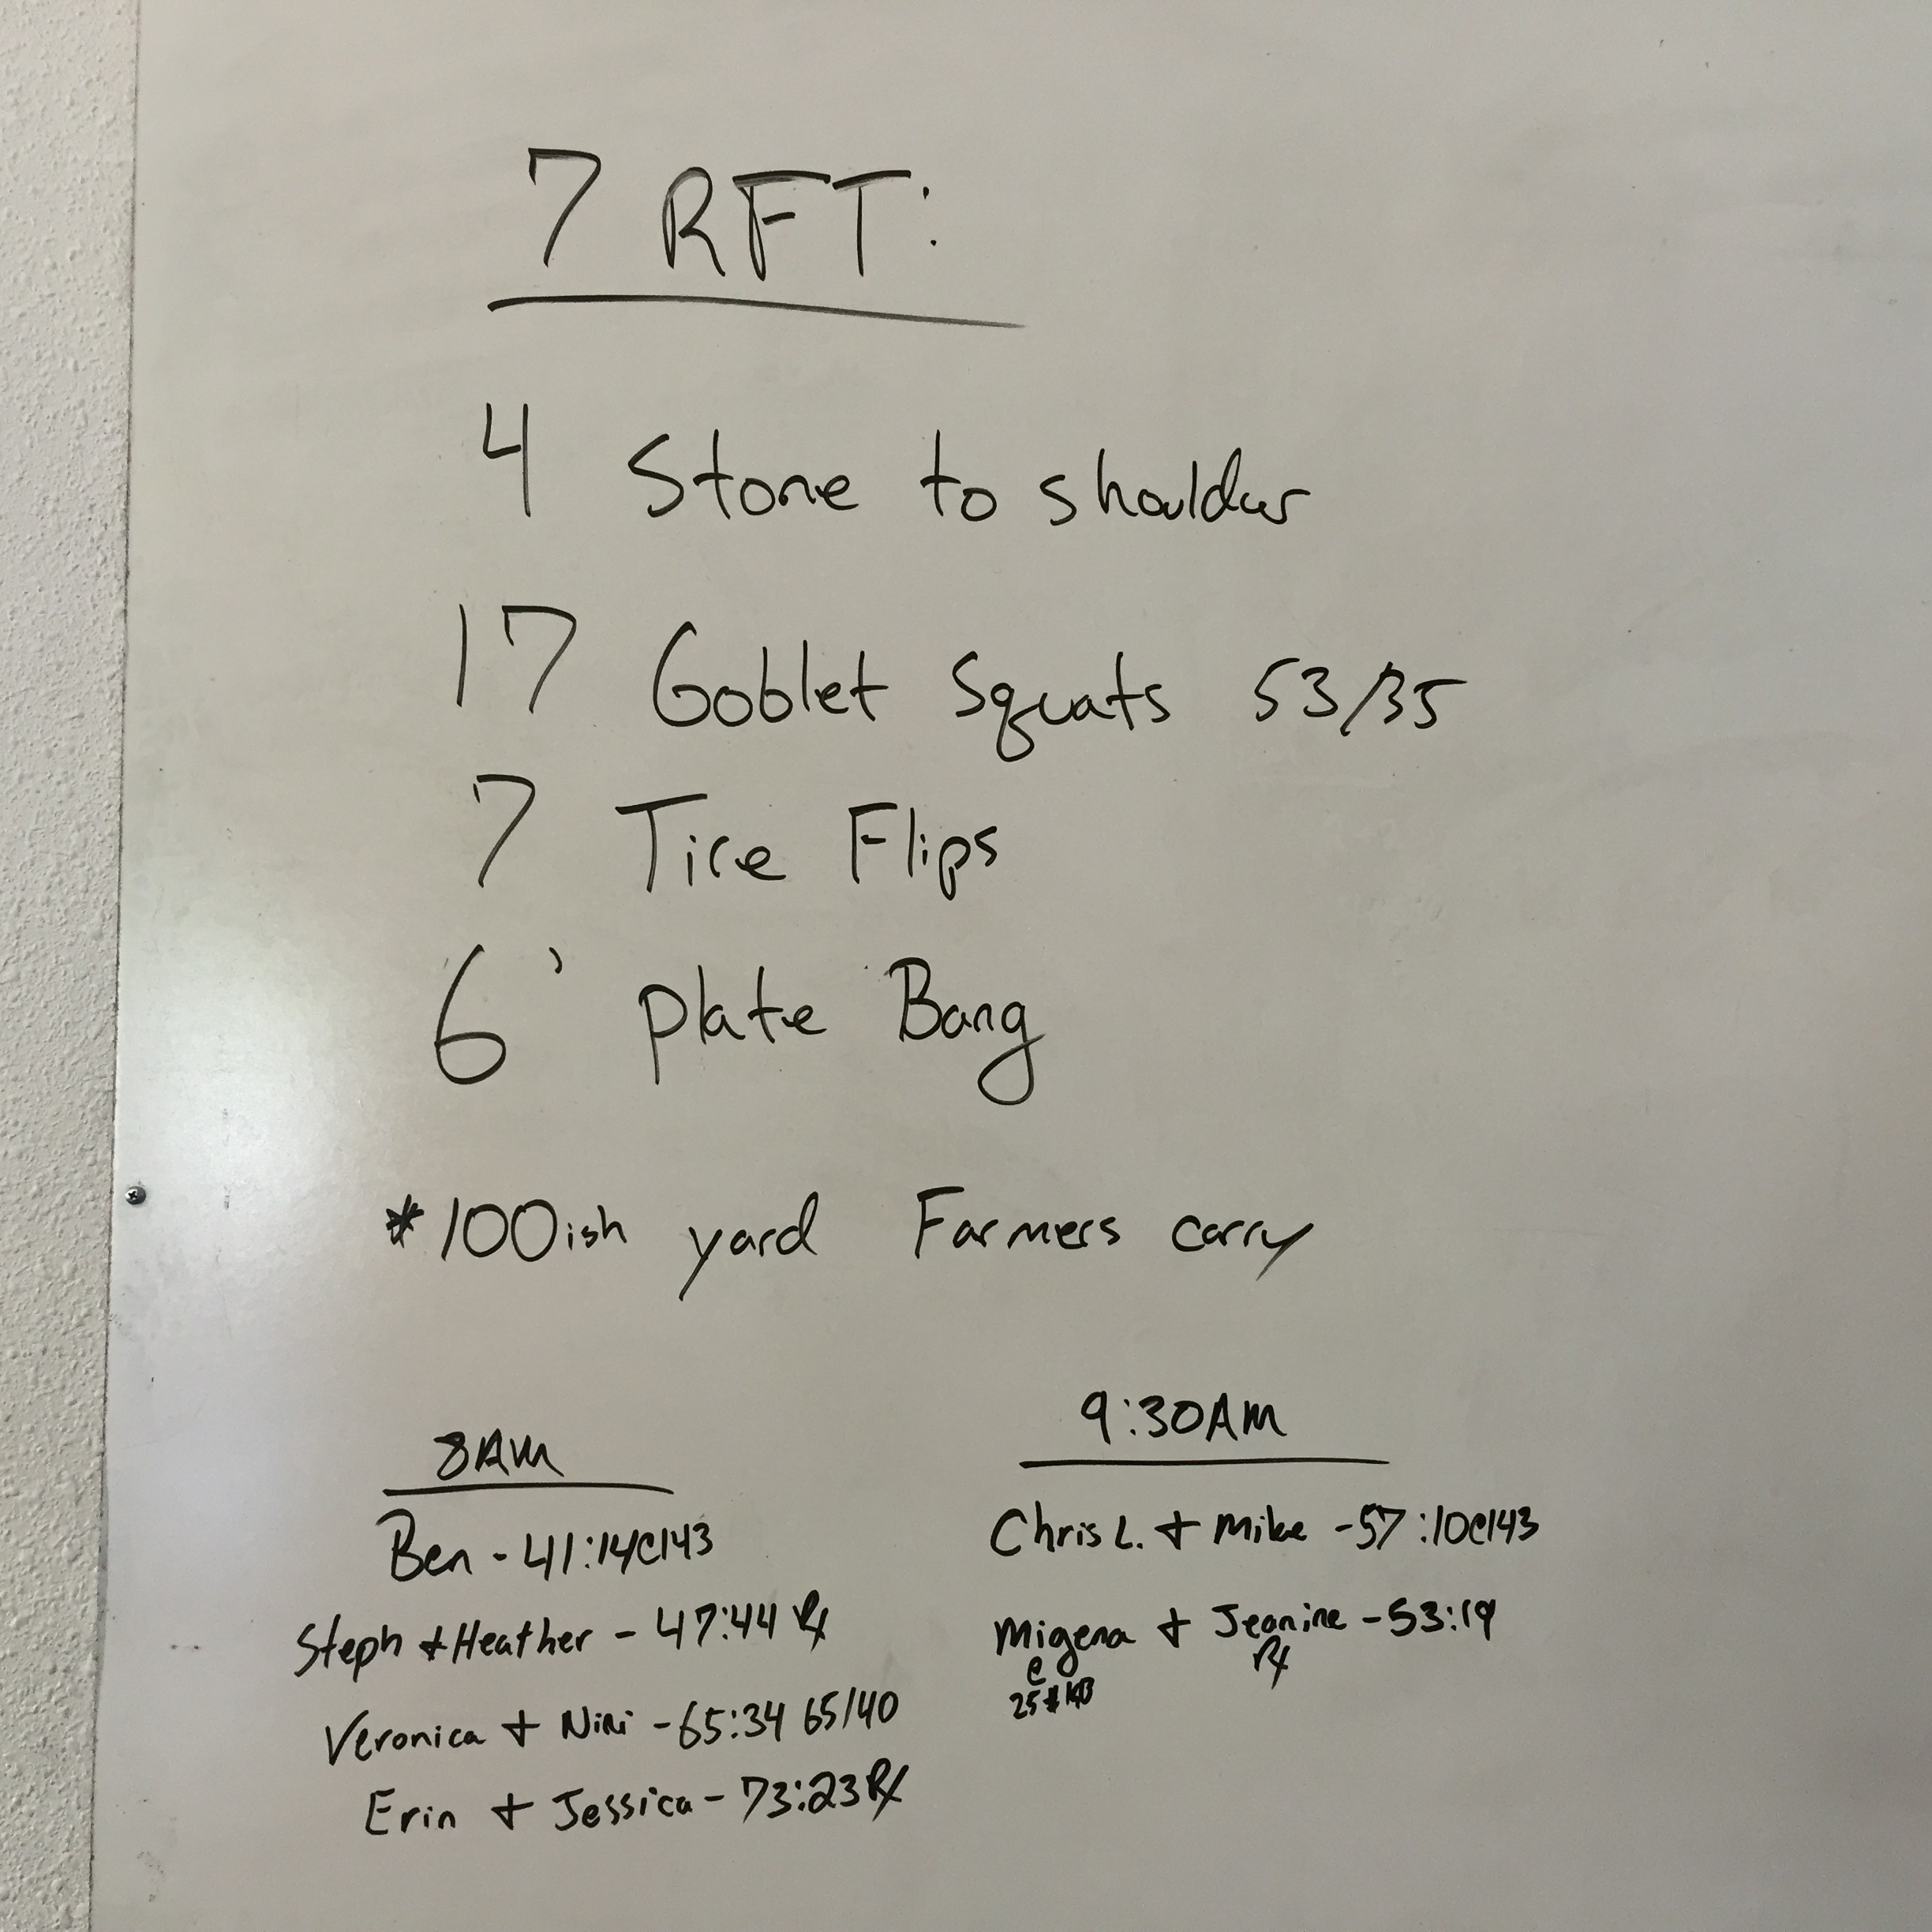 7 RFT:
4 Stone to shoulder
17 Goblet Squats 53/35
7 Tire Flips
6' Plate Bang
*100ish yard Farmers carry
8AM
Ben - 41:14@143
Steph + Heather - 47:44 Rx
Veronica + Nini - 65:34 65/40
Erin + Jessica - 73:23 Rx
9:30AM
Chris L. + Mike - 57:10@143
Migena + Jeanine - 53:19
@ Rx
25#